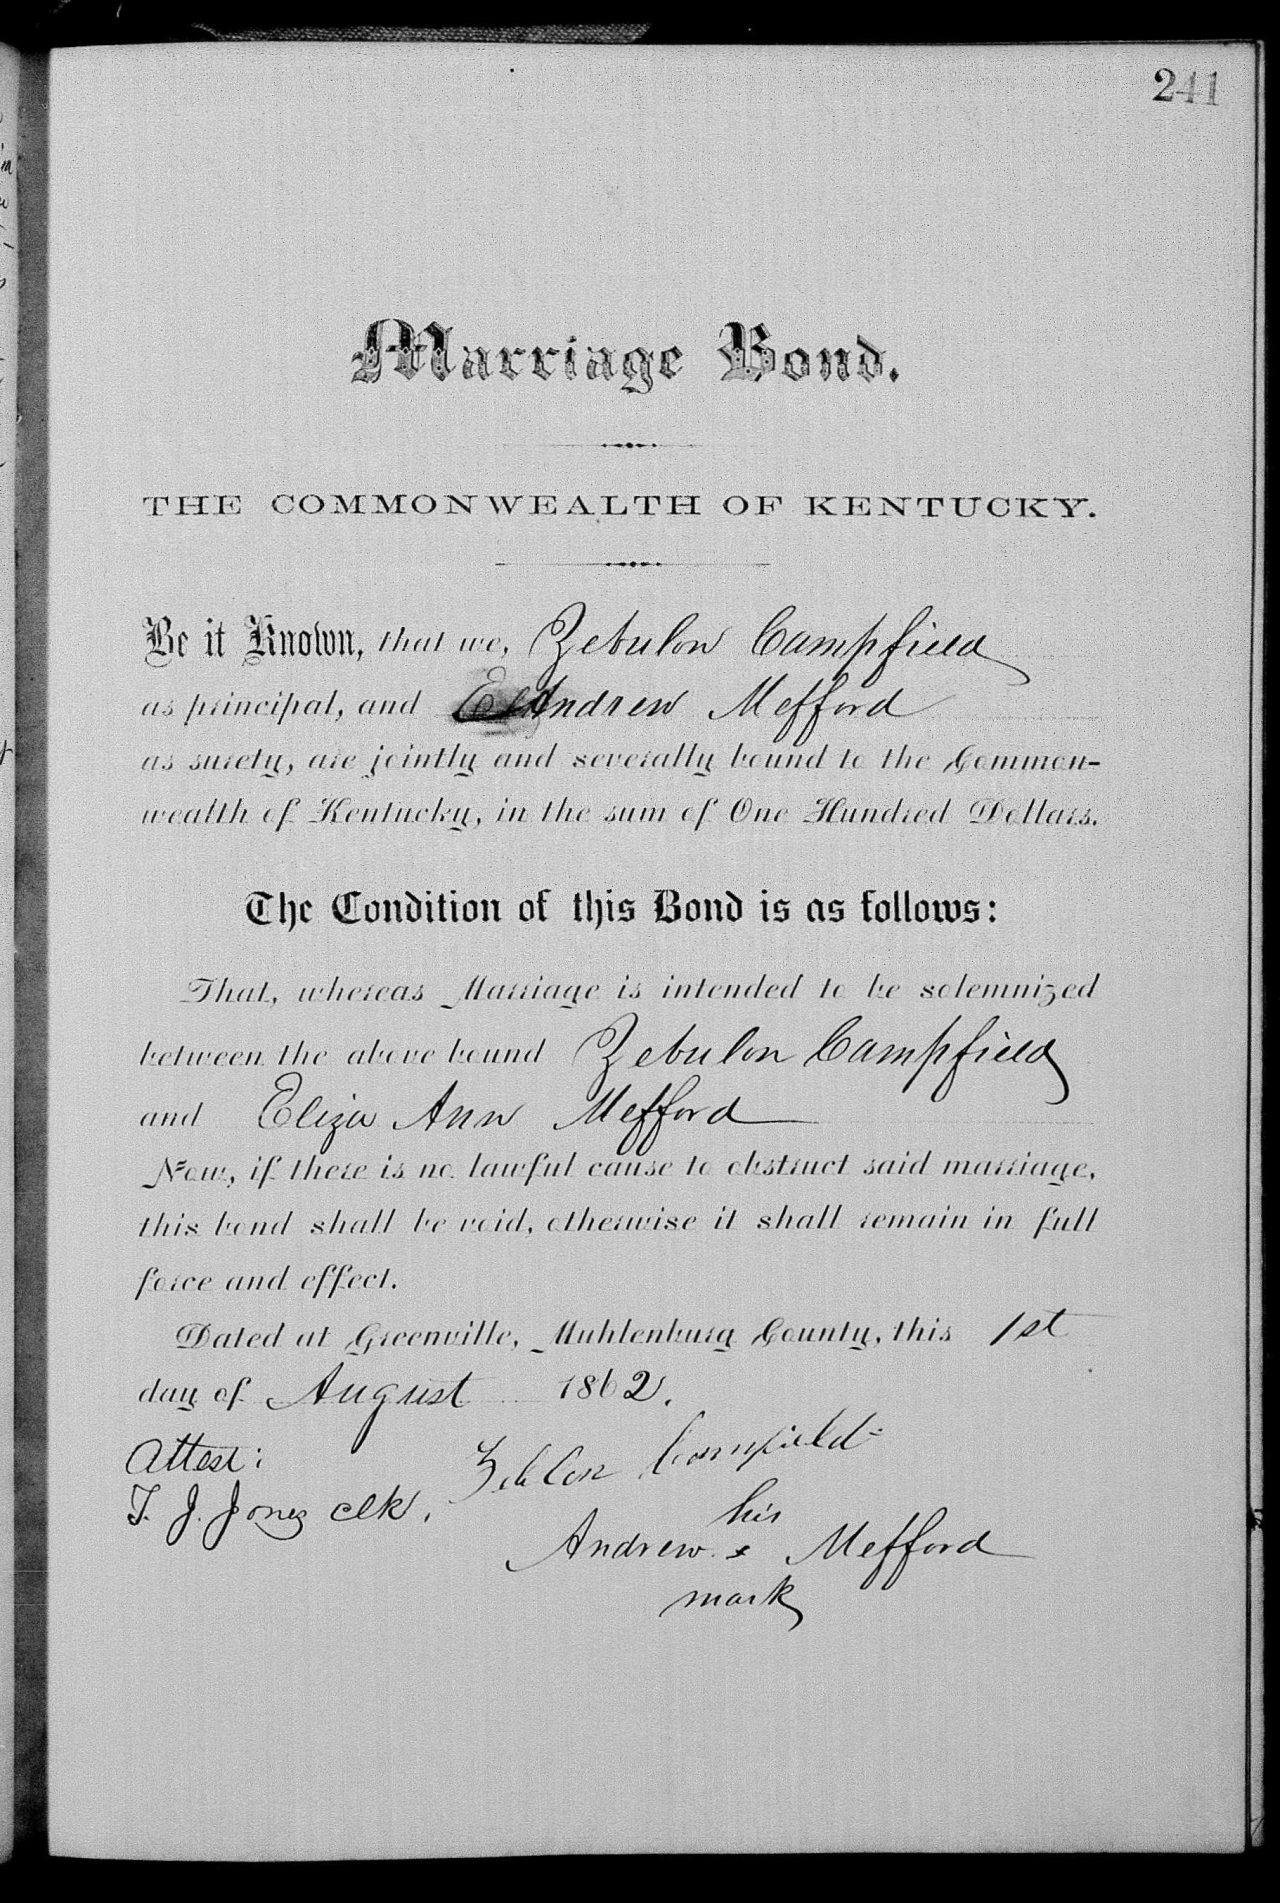 241
Marriage Bond.
THE COMMONWEALTH OF KENTUCKY.
Be it Known, that we, Zebulon Campfield
as principal, and Andrew Mefford
as surety, are jointly and severally bound to the Common-
wealth of Kentucky, in the sum of One Hundred Dollars.
The Condition of this Bond is as follows:
That, whereas Marriage is intended to be solemnized
between the above bound Zebulon Campfield
and Eliza Ann Mefford
Now, if there is no lawful cause to obstruct said marriage,
this bond shall be void, otherwise it shall remain in full
force and effect.
Dated at Greenville, Muhlenburg County, this 1st
day of August 1862.
Attest:
Zeblon Campfield
T. J. Jones clk.
his
Andrew x Mefford
mark